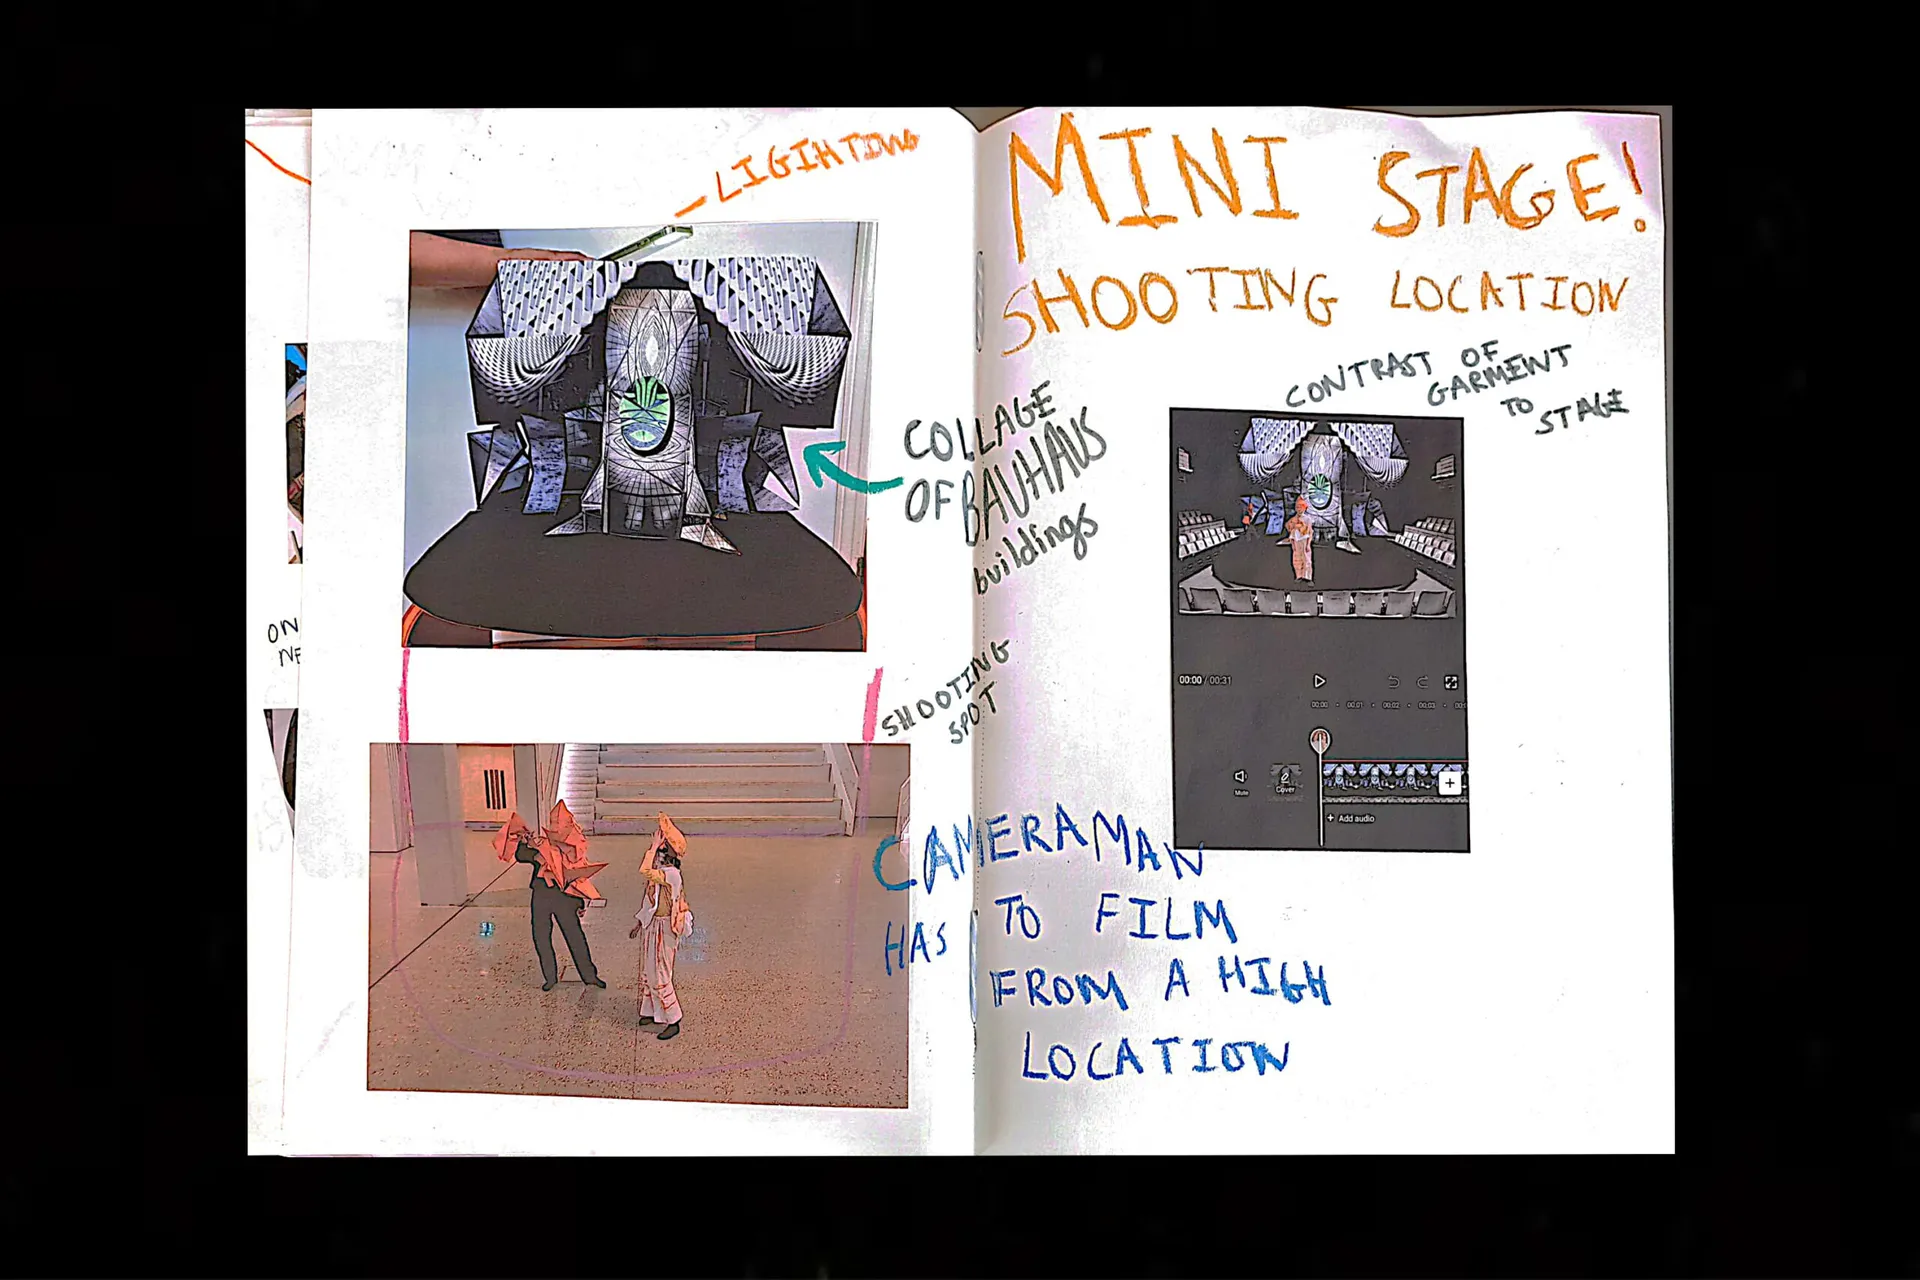 LIGIHTING
MINI STAGE!
SHOOTING LOCATION
CONTRAST OF
GARMENT
TO
STAGE
COLLAGE
OF BAUHAUS
buildings
ON
SHOOTING
SPOT
00:00 / 00:31
00:00 00:01 00:02 00:03
Mute
Cover
+ Add audio
CAMERAMAN
HAS TO FILM
FROM A HIGH
LOCATION